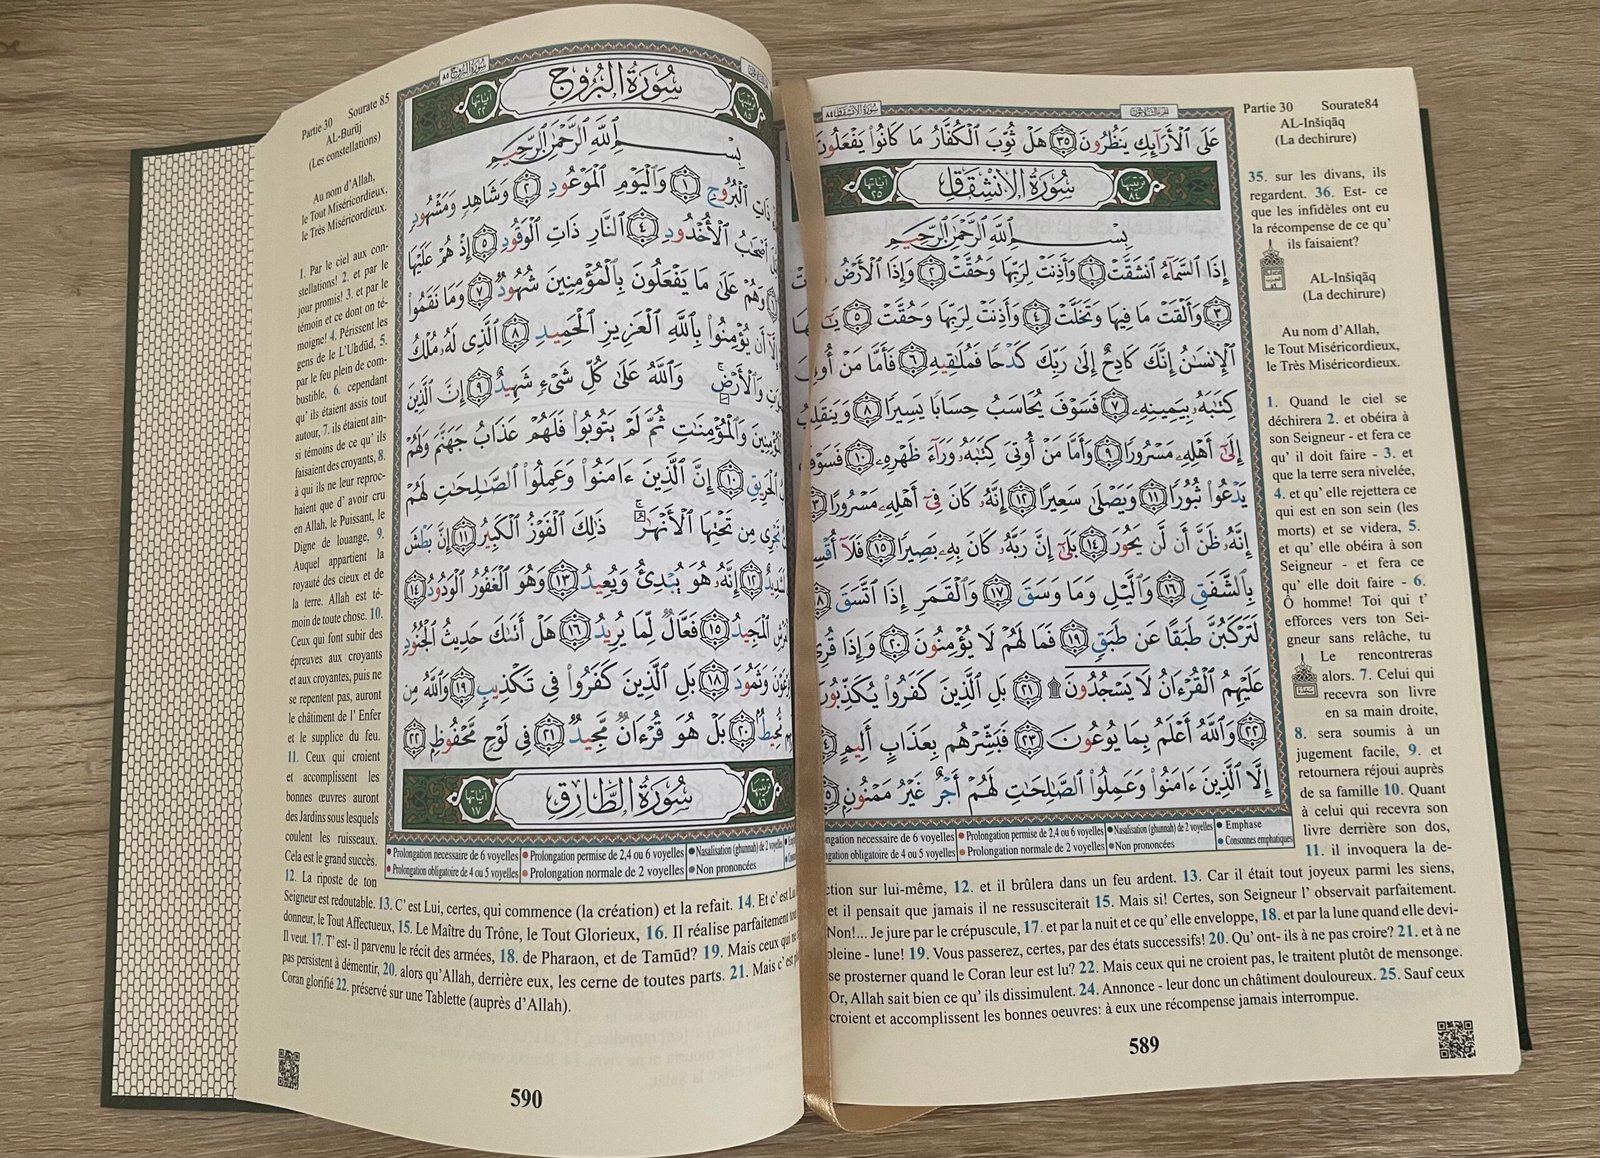 سُورَةُ الانشِقَاق ٨٤
الجزء الثلاثون
Partie 30 Sourate84
AL-Inšiqāq
(La dechirure)
عَلَى ٱلْأَرَآئِكِ يَنظُرُونَ ٣٥ هَلْ ثُوِّبَ ٱلْكُفَّارُ مَا كَانُوا۟ يَفْعَلُونَ
ترتيبها ٨٤
سُورَةُ الانشِقَاق
آياتها ٢٥
بِسْمِ ٱللَّهِ ٱلرَّحْمَٰنِ ٱلرَّحِيمِ
إِذَا ٱلسَّمَآءُ ٱنشَقَّتْ ١ وَأَذِنَتْ لِرَبِّهَا وَحُقَّتْ ٢ وَإِذَا ٱلْأَرْضُ
٣ وَأَلْقَتْ مَا فِيهَا وَتَخَلَّتْ ٤ وَأَذِنَتْ لِرَبِّهَا وَحُقَّتْ ٥
ٱلْإِنسَٰنُ إِنَّكَ كَادِحٌ إِلَىٰ رَبِّكَ كَدْحًا فَمُلَٰقِيهِ ٦ فَأَمَّا مَنْ
كِتَٰبَهُۥ بِيَمِينِهِۦ ٧ فَسَوْفَ يُحَاسَبُ حِسَابًا يَسِيرًا ٨ وَيَنقَلِبُ
إِلَىٰٓ أَهْلِهِۦ مَسْرُورًا ٩ وَأَمَّا مَنْ أُوتِىَ كِتَٰبَهُۥ وَرَآءَ ظَهْرِهِۦ ١٠ فَسَوْفَ
يَدْعُوا۟ ثُبُورًا ١١ وَيَصْلَىٰ سَعِيرًا ١٢ إِنَّهُۥ كَانَ فِىٓ أَهْلِهِۦ مَسْرُورًا
إِنَّهُۥ ظَنَّ أَن لَّن يَحُورَ ١٤ بَلَىٰٓ إِنَّ رَبَّهُۥ كَانَ بِهِۦ بَصِيرًا ١٥ فَلَآ
بِٱلشَّفَقِ ١٦ وَٱلَّيْلِ وَمَا وَسَقَ ١٧ وَٱلْقَمَرِ إِذَا ٱتَّسَقَ
لَتَرْكَبُنَّ طَبَقًا عَن طَبَقٍ ١٩ فَمَا لَهُمْ لَا يُؤْمِنُونَ ٢٠ وَإِذَا قُرِئَ
عَلَيْهِمُ ٱلْقُرْءَانُ لَا يَسْجُدُونَ ۩ ٢١ بَلِ ٱلَّذِينَ كَفَرُوا۟ يُكَذِّبُونَ
٢٢ وَٱللَّهُ أَعْلَمُ بِمَا يُوعُونَ ٢٣ فَبَشِّرْهُم بِعَذَابٍ أَلِيمٍ
إِلَّا ٱلَّذِينَ ءَامَنُوا۟ وَعَمِلُوا۟ ٱلصَّٰلِحَٰتِ لَهُمْ أَجْرٌ غَيْرُ مَمْنُونٍۭ
35. sur les divans, ils
regardent. 36. Est- ce
que les infidèles ont eu
la récompense de ce qu’
ils faisaient?
AL-Inšiqāq
(La dechirure)
Au nom d’Allah,
le Tout Miséricordieux,
le Très Miséricordieux.
1. Quand le ciel se
déchirera 2. et obéira à
son Seigneur - et fera ce
qu’ il doit faire - 3. et
que la terre sera nivelée,
4. et qu’ elle rejettera ce
qui est en son sein (les
morts) et se videra, 5.
et qu’ elle obéira à son
Seigneur - et fera ce
qu’ elle doit faire - 6.
Ô homme! Toi qui t’
efforces vers ton Sei-
gneur sans relâche, tu
Le rencontreras
alors. 7. Celui qui
recevra son livre
en sa main droite,
8. sera soumis à un
jugement facile, 9. et
retournera réjoui auprès
de sa famille 10. Quant
à celui qui recevra son
livre derrière son dos,
11. il invoquera la de-
Prolongation permise de 2,4 ou 6 voyelles Nasalisation (ghunnah) de 2 voyelles Emphase
Prolongation normale de 2 voyelles Non prononcées Consonnes emphatiques
sur lui-même, 12. et il brûlera dans un feu ardent. 13. Car il était tout joyeux parmi les siens,
et il pensait que jamais il ne ressusciterait 15. Mais si! Certes, son Seigneur l’ observait parfaitement.
Non!... Je jure par le crépuscule, 17. et par la nuit et ce qu’ elle enveloppe, 18. et par la lune quand elle devi-
pleine - lune! 19. Vous passerez, certes, par des états successifs! 20. Qu’ ont- ils à ne pas croire? 21. et à ne
se prosterner quand le Coran leur est lu? 22. Mais ceux qui ne croient pas, le traitent plutôt de mensonge.
Or, Allah sait bien ce qu’ ils dissimulent. 24. Annonce - leur donc un châtiment douloureux. 25. Sauf ceux
croient et accomplissent les bonnes oeuvres: à eux une récompense jamais interrompue.
589
سُورَةُ البُرُوج ٨٥
Partie 30 Sourate 85
AL-Burūj
(Les constellations)
ترتيبها ٨٥
سُورَةُ البُرُوج
آياتها ٢٢
بِسْمِ ٱللَّهِ ٱلرَّحْمَٰنِ ٱلرَّحِيمِ
ذَاتِ ٱلْبُرُوجِ ١ وَٱلْيَوْمِ ٱلْمَوْعُودِ ٢ وَشَاهِدٍ وَمَشْهُودٍ
أَصْحَٰبُ ٱلْأُخْدُودِ ٤ ٱلنَّارِ ذَاتِ ٱلْوَقُودِ ٥ إِذْ هُمْ عَلَيْهَا
وَهُمْ عَلَىٰ مَا يَفْعَلُونَ بِٱلْمُؤْمِنِينَ شُهُودٌ ٧ وَمَا نَقَمُوا۟
أَن يُؤْمِنُوا۟ بِٱللَّهِ ٱلْعَزِيزِ ٱلْحَمِيدِ ٨ ٱلَّذِى لَهُۥ مُلْكُ
وَٱلْأَرْضِ وَٱللَّهُ عَلَىٰ كُلِّ شَىْءٍ شَهِيدٌ ٩ إِنَّ ٱلَّذِينَ
وَٱلْمُؤْمِنَٰتِ ثُمَّ لَمْ يَتُوبُوا۟ فَلَهُمْ عَذَابُ جَهَنَّمَ وَلَهُمْ
ٱلْحَرِيقِ ١٠ إِنَّ ٱلَّذِينَ ءَامَنُوا۟ وَعَمِلُوا۟ ٱلصَّٰلِحَٰتِ لَهُمْ
تَجْرِى مِن تَحْتِهَا ٱلْأَنْهَٰرُ ذَٰلِكَ ٱلْفَوْزُ ٱلْكَبِيرُ ١١ إِنَّ بَطْشَ
١٢ إِنَّهُۥ هُوَ يُبْدِئُ وَيُعِيدُ ١٣ وَهُوَ ٱلْغَفُورُ ٱلْوَدُودُ ١٤
ٱلْمَجِيدُ ١٥ فَعَّالٌ لِّمَا يُرِيدُ ١٦ هَلْ أَتَىٰكَ حَدِيثُ ٱلْجُنُودِ
وَثَمُودَ ١٨ بَلِ ٱلَّذِينَ كَفَرُوا۟ فِى تَكْذِيبٍ ١٩ وَٱللَّهُ مِن
مُّحِيطٌۢ ٢٠ بَلْ هُوَ قُرْءَانٌ مَّجِيدٌ ٢١ فِى لَوْحٍ مَّحْفُوظٍۭ ٢٢
ترتيبها ٨٦
سُورَةُ الطَّارِق
آياتها ١٧
Au nom d’Allah,
le Tout Miséricordieux,
le Très Miséricordieux.
1. Par le ciel aux con-
stellations! 2. et par le
jour promis! 3. et par le
témoin et ce dont on té-
moigne! 4. Périssent les
gens de le L’Uhdūd, 5.
par le feu plein de com-
bustible, 6. cependant
qu’ ils étaient assis tout
autour, 7. ils étaient ain-
si témoins de ce qu’ ils
faisaient des croyants, 8.
à qui ils ne leur reproc-
haient que d’ avoir cru
en Allah, le Puissant, le
Digne de louange, 9.
Auquel appartient la
royauté des cieux et de
la terre. Allah est té-
moin de toute chose. 10.
Ceux qui font subir des
épreuves aux croyants
et aux croyantes, puis ne
se repentent pas, auront
le châtiment de l’ Enfer
et le supplice du feu.
11. Ceux qui croient
et accomplissent les
bonnes œuvres auront
des Jardins sous lesquels
coulent les ruisseaux.
Cela est le grand succès.
12. La riposte de ton
Prolongation necessaire de 6 voyelles Prolongation permise de 2,4 ou 6 voyelles Nasalisation (ghunnah) de 2 voyelles
Prolongation obligatoire de 4 ou 5 voyelles Prolongation normale de 2 voyelles Non prononcées
Seigneur est redoutable. 13. C’ est Lui, certes, qui commence (la création) et la refait. 14. Et c’ est Lui
donneur, le Tout Affectueux, 15. Le Maître du Trône, le Tout Glorieux, 16. Il réalise parfaitement
Il veut. 17. T’ est- il parvenu le récit des armées, 18. de Pharaon, et de Tamūd? 19. Mais ceux qui ne
pas persistent à démentir, 20. alors qu’Allah, derrière eux, les cerne de toutes parts. 21. Mais c’ est
Coran glorifié 22. préservé sur une Tablette (auprès d’Allah).
590